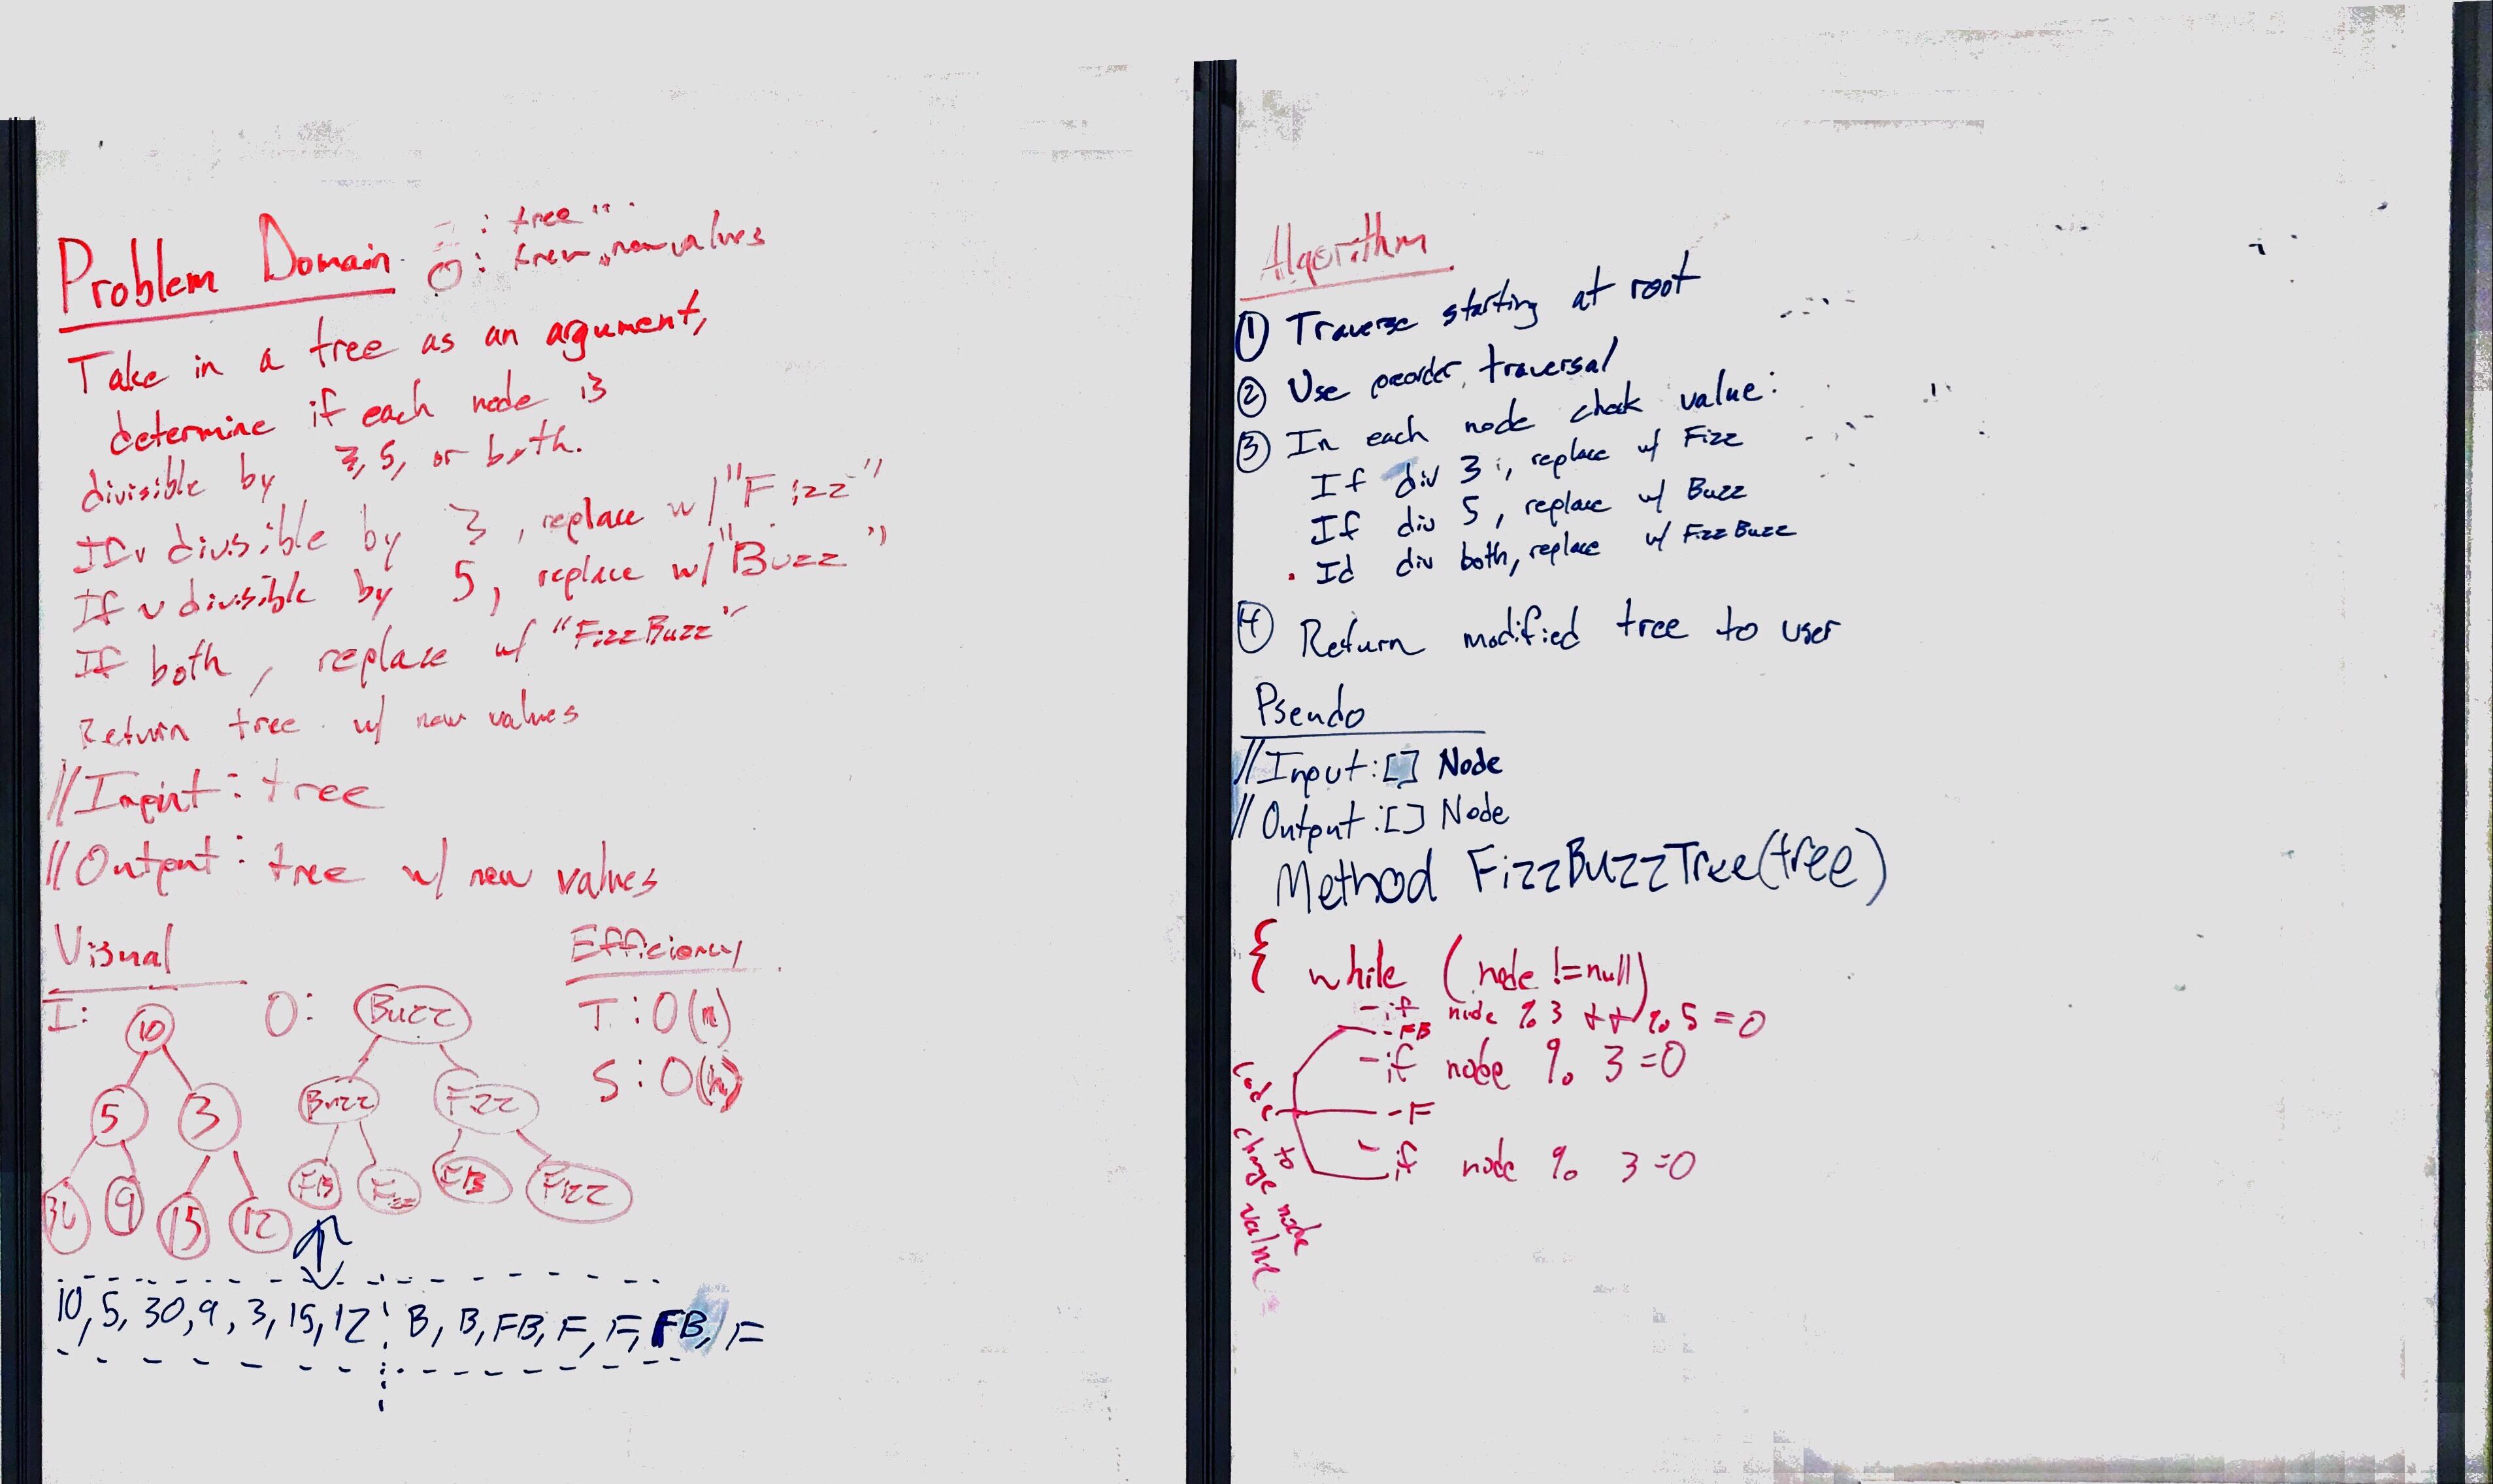 Problem Domain
: tree
O: tree, new values
Take in a tree as an argument,
determine if each node is
divisible by 3, 5, or both.
If v divisible by 3, replace w/ "Fizz"
If v divisible by 5, replace w/ "Buzz"
If both, replace w/ "FizzBuzz"
Return tree w/ new values
//Input: tree
//Output: tree w/ new values
Visual
I:
10
5 3
30 9 15 12
O:
Buzz
Buzz Fizz
FB Fizz FB Fizz
Efficiency
T: O(n)
S: O(h)
10, 5, 30, 9, 3, 15, 12 B, B, FB, F, F, FB, F
Algorithm
① Traverse starting at root
② Use preorder traversal
③ In each node check value:
If div 3, replace w/ Fizz
If div 5, replace w/ Buzz
Id div both, replace w/ FizzBuzz
④ Return modified tree to user
Pseudo
//Input: [] Node
//Output: [] Node
Method FizzBuzzTree(tree)
{ while (node != null)
- if node % 3 ++ % 5 = 0
- FB
- if node % 3 = 0
- F
- if node % 3 = 0
Code to change node value